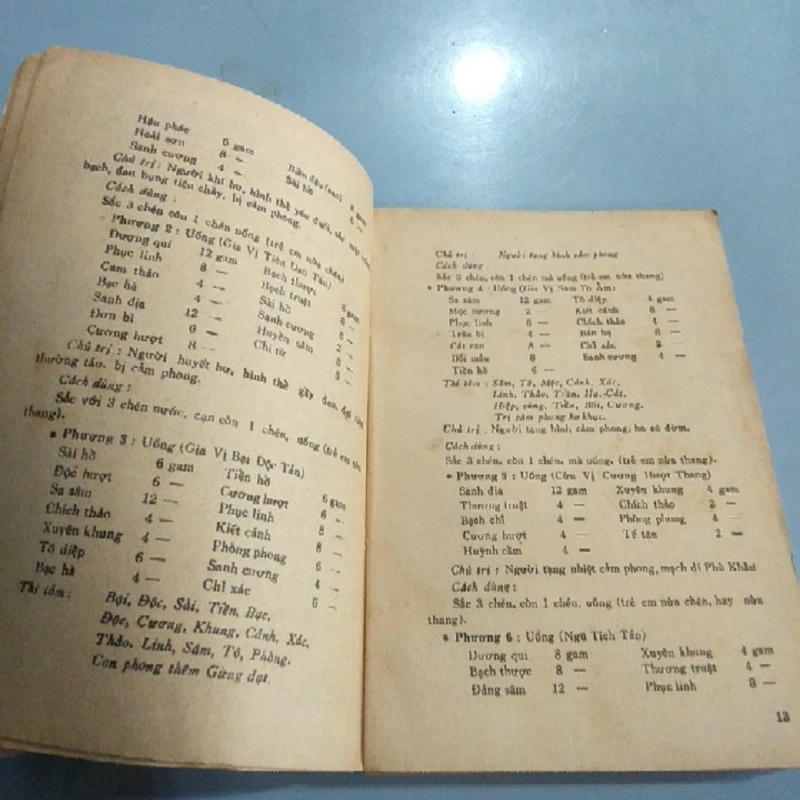 Hậu phác 6 gam Biển đậu (sao) 8 gam
Hoài sơn 8 — Sài hồ 6 —
Sanh cương 4 —
Chủ trị : Người khí hư, hình thể yếu đuối, sắc mặt
bạch, đau bụng tiêu chảy, bị cảm phong.
Cách dùng :
Sắc 3 chén còn 1 chén uống (trẻ em nửa chén)
Phương 2 : Uống (Gia Vị Tiêu Dao Tán)
Đương qui 12 gam Bạch thược 8 gam
Phục linh 8 — Bạch truật 8 —
Cam thảo 4 — Sài hồ 6 —
Bạc hà 4 — Sanh cương 6 —
Sanh địa 12 — Huyền sâm
Đơn bì 6 — Chi tử
Cương hượt 8 —
Chủ trị : Người huyết hư, hình thể gầy đen, đại tiện
thường táo, bị cảm phong.
Cách dùng :
Sắc với 3 chén nước, cạn còn 1 chén, uống (trẻ em nửa
thang).
• Phương 3 : Uống (Gia Vị Bại Độc Tán)
Sài hồ 6 gam Tiền hồ 6 gam
Độc hượt 6 — Cương hượt 6 —
Sa sâm 12 — Phục linh 8 —
Chích thảo 4 — Kiết cánh 8 —
Xuyên khung 4 — Phòng phong 6 —
Tô diệp 6 — Sanh cương 4 —
Bạc hà 4 — Chỉ xác 6 —
Thi tóm : Bại, Độc, Sài, Tiền, Bạc,
Độc, Cương, Khung, Cánh, Xác,
Thảo, Linh, Sâm, Tô, Phòng,
Can phong thêm Gừng đạt.
Chủ trị : Người tạng bình cảm phong
Cách dùng :
Sắc 3 chén, còn 1 chén mà uống (trẻ em nửa thang)
• Phương 4 : Uống (Gia Vị Sâm Tô Ẩm)
Sa sâm 12 gam Tô diệp 4 gam
Mộc hương 2 — Kiết cánh 8 —
Phục linh 8 — Chích thảo 4 —
Trần bì 4 — Bán hạ 8 —
Cát căn 8 — Chỉ xác
Bối mẫu 8 Sanh cương 4 —
Tiền hồ 6 —
Thi tóm : Sâm, Tô, Mộc, Cánh, Xác,
Linh, Thảo, Trần, Hạ, Cát,
Hiệp, cùng, Tiền, Bối, Cương.
Trị cảm phong ho khục.
Chủ trị : Người tạng bình cảm phong, ho có đờm.
Cách dùng :
Sắc 3 chén, còn 1 chén, mà uống, (trẻ em nửa thang).
• Phương 5 : Uống (Cửu Vị Cương Hượt Thang)
Sanh địa 12 gam Xuyên khung 4 gam
Thương truật 4 — Chích thảo 2 —
Bạch chỉ 4 — Phòng phong 4 —
Cương hượt 4 — Tế tân 2 —
Huỳnh cầm 4 —
Chủ trị : Người tạng nhiệt cảm phong, mạch đi Phù Khẩn
Cách dùng :
Sắc 3 chén, còn 1 chén, uống (trẻ em nửa chén, hay nửa
thang).
• Phương 6 : Uống (Ngũ Tích Tán)
Đương qui 8 gam Xuyên khung 4 gam
Bạch thược 8 — Thương truật 4 —
Đảng sâm 12 — Phục linh 8 —
13